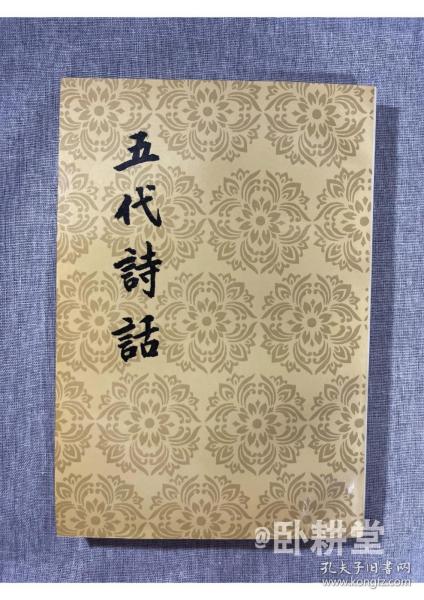 五代詩話
@卧耕堂
孔夫子旧书网
www.kongfz.com